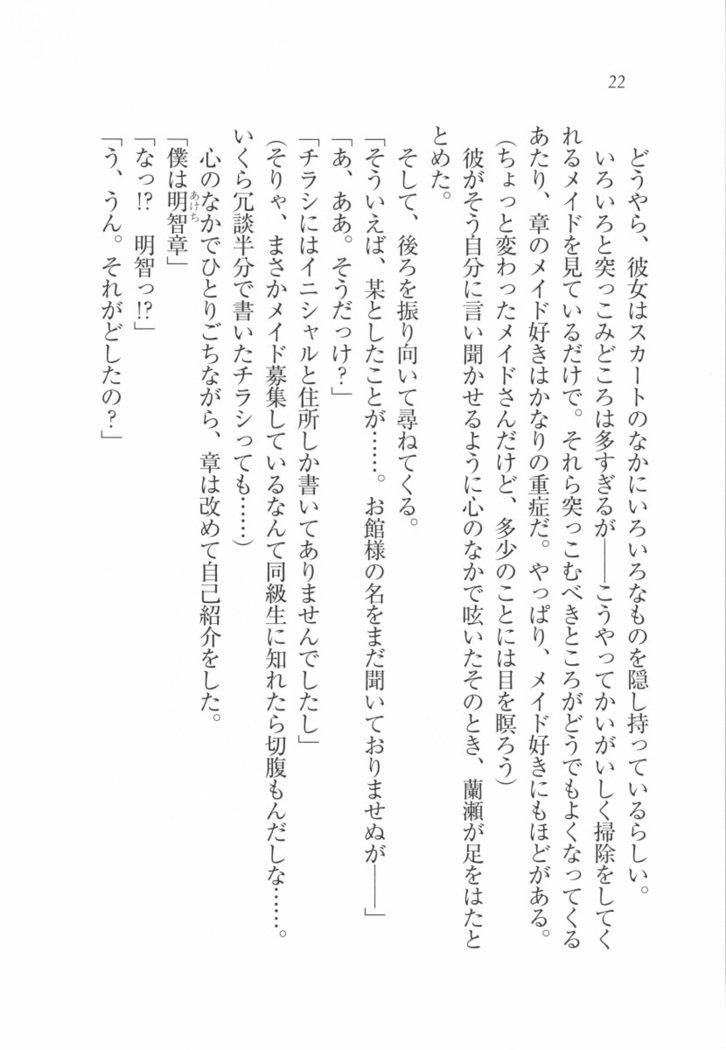 22
どうやら、彼女はスカートのなかにいろいろなものを隠し持っているらしい。
いろいろと突っこみどころは多すぎるが――こうやってかいがいしく掃除をしてく
れるメイドを見ているだけで。それら突っこむべきところがどうでもよくなってくる
あたり、章のメイド好きはかなりの重症だ。やっぱり、メイド好きにもほどがある。
(ちょっと変わったメイドさんだけど、多少のことには目を瞑ろう)
彼がそう自分に言い聞かせるように心のなかで呟いたそのとき、蘭瀬が足をはたと
とめた。
そして、後ろを振り向いて尋ねてくる。
「そういえば、某としたことが……。お館様の名をまだ聞いておりませぬが――」
「あ、ああ。そうだっけ?」
「チラシにはイニシャルと住所しか書いてありませんでしたし」
(そりゃ、まさかメイド募集しているなんて同級生に知れたら切腹もんだしな……。
いくら冗談半分で書いたチラシっても……)
心のなかでひとりごちながら、章は改めて自己紹介をした。
「僕は明智章」
「なっ!? 明智っ!?」
「う、うん。それがどしたの?」